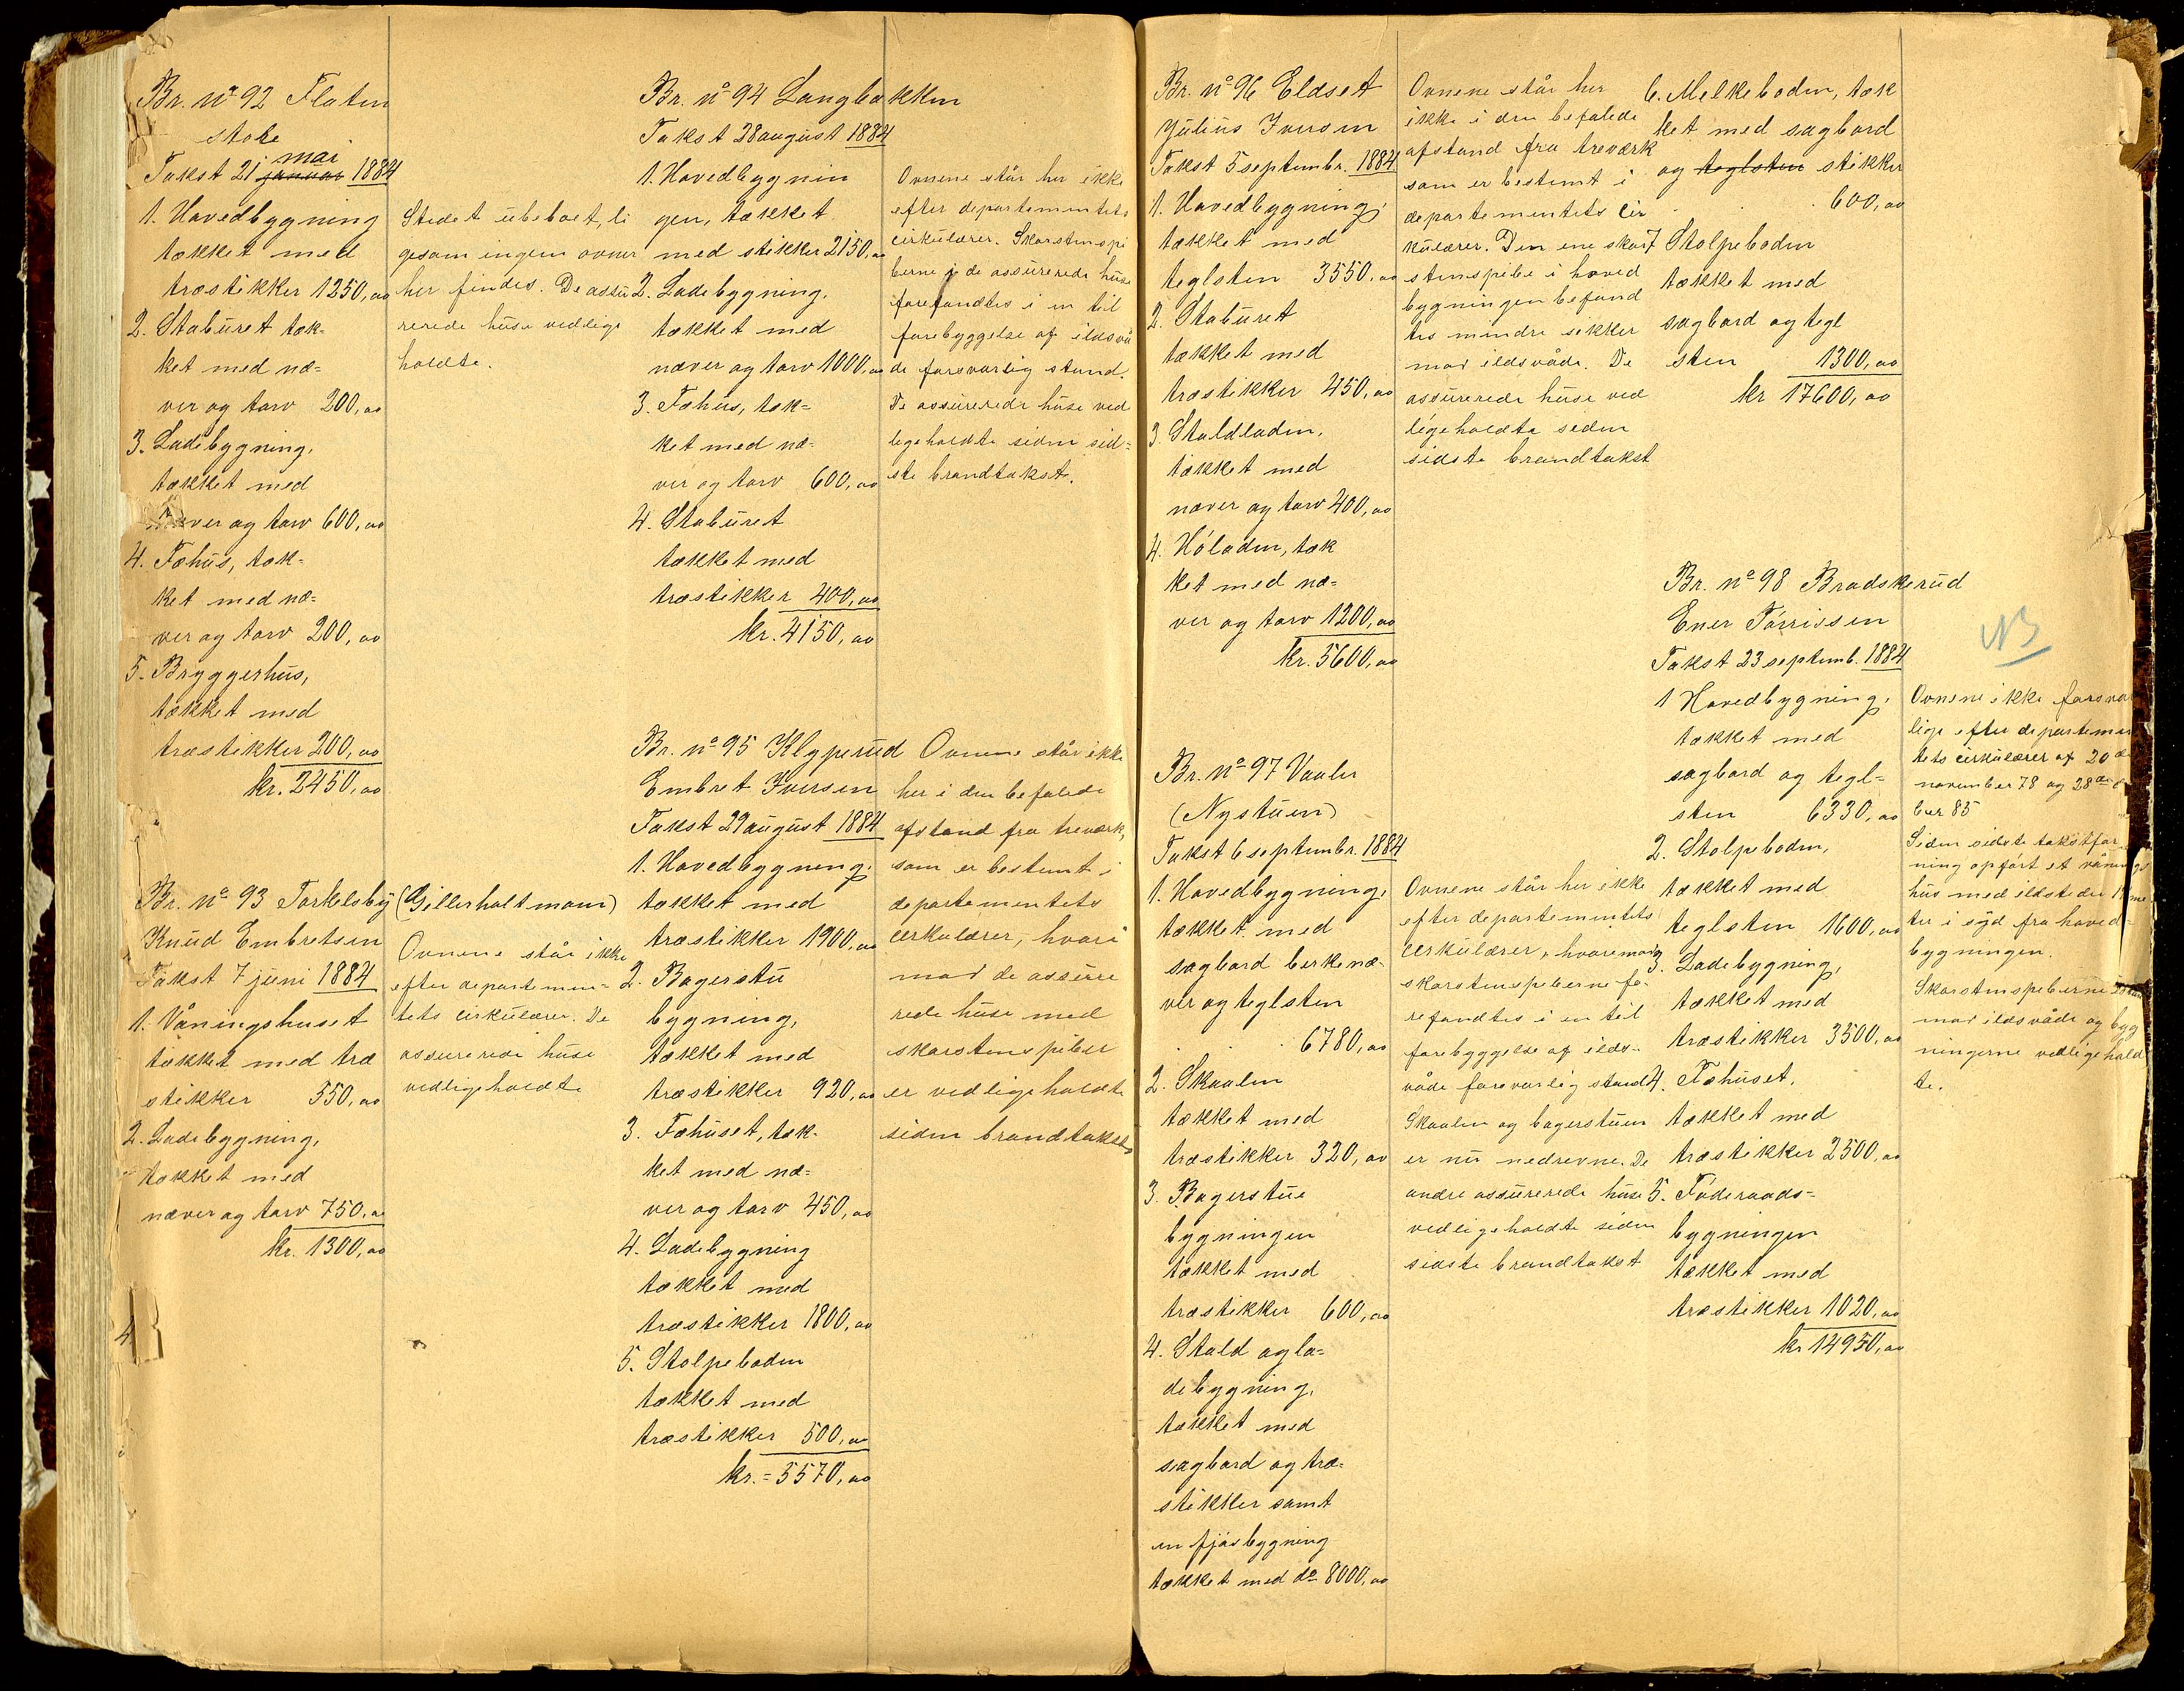 Br. nº 92 Flaten
stohe
mai
Takst 21 januar 1884
1. Hovedbygning
tækket med
træstikker 1250,00
2. Staburet tæk=
ket med næ=
ver og torv 200,00
3. Ladebygning,
tækket med
næver og torv 600,00
4. Fæhus, tæk=
ket med næ=
ver og torv 200,00
5. Bryggerhus,
tækket med
træstikker 200,00
kr. 2450,00
Stedet ubeboet, li
gesom ingen ovner
her findes. De assu
rerede huse vedlige
holdte.
Br. nº 93 Torkelsby (Gillerholtmoen)
Knud Embretsen
Takst 7 juni 1884
1. Våningshuset
tækket med træ
stikker 550,00
2. Ladebygning,
tækket med
næver og torv 750,00
kr. 1300,00
Ovnene står ikke
efter departemen=
tets cirkulærer. De
assurerede huse
vedligeholdte
Br. nº 94 Langbakken
Takst 28 august 1884
1. Hovedbygnin
gen, tækket
med stikker 2150,00
2. Ladebygning,
tækket med
næver og torv 1000,00
3. Fæhus, tæk=
ket med næ=
ver og torv 600,00
4. Staburet
tækket med
træstikker 400,00
kr. 4150,00
Ovnene står her ikke
efter departementets
cirkulærer. Skorstenspi
berne i de assurerede huse
forefandtes i en til
forebyggelse af ildsvå
de forsvarlig stand.
De assurerede huse ved
ligeholdte siden sid=
ste brandtakst.
Br. nº 95 Klyperud
Embret Iversen
Takst 29 august 1884
1. Hovedbygning,
tækket med
træstikker 1900,00
2. Bagerstu
bygning,
tækket med
træstikker 920,00
3. Fæhuset, tæk-
ket med næ=
ver og torv 450,00
4. Ladebygning
tækket med
træstikker 1800,00
5. Stolpeboden
tækket med
træstikker 500,00
kr. = 5570,00
Ovnene står ikke
her i den befalede
afstand fra treværk,
som er bestemt i
departementets
cirkulærer, hvori
mod de assure
rede huse med
skorstenspiber
er vedligeholdte
siden brandtaksten
Br. nº 96 Eldset
Julius Iversen
Takst 5 septembr. 1884
1. Hovedbygning,
tækket med
teglsten 3550,00
2. Staburet
tækket med
træstikker 450,00
3. Staldladen,
tækket med
næver og torv 400,00
4. Hóladen, tæk
ket med næ=
ver og torv 1200,00
kr. 5600,00
Ovnene står her
ikke i den befalede
afstand fra treværk
som er bestemt i
departementets cir
kulærer. Den ene skor
stenspibe i hoved
bygningen befand
tes mindre sikker
mod ildsvåde. De
assurerede huse ved
ligeholdte siden
sidste brandtakst
Br. nº 97 Vaaler
(Nystuen)
Takst 6 septembr. 1884
1. Hovedbygning,
tækket med
sagbord berkenæ-
ver og teglsten
6780,00
2. Skaalen
tækket med
træstikker 320,00
3. Bagerstue
bygningen
tækket med
træstikker 600,00
4. Stald og la=
debygning,
tækket med
sagbord og træ=
stikker samt
en fjósbygning
tækket med do 8000,00
Ovnene står her ikke
efter departementets
cirkulærer, hvorimod
skorstenspiberne fo-
refandtes i en til
forebyggelse af ilds-
våde forsvarlig stand.
Skaalen og bagerstuen
er nu nedrevne. De
andre assurerede huse
vedligeholdte siden
sidste brandtakst
6. Melkeboden, tæk
ket med sagbord
og teglsten stikker
600,00
7 Stolpeboden
tækket med
sagbord og tegl
sten 1300,00
kr 17600,00
Br. nº 98 Bradskerud
Ener Tórrissen
Takst 23 septemb. 1884
1 Hovedbygning,
tækket med
sagbord og tegl=
sten 6330,00
2. Stolpeboden,
tækket med
teglsten 1600,00
3. Ladebygning,
tækket med
træstikker 3500,00
4. Fæhuset,
tækket med
træstikker 2500,00
5. Føderaads=
bygningen
tækket med
træstikker 1020,00
kr 14950,00
NB
Ovnene ikke forsvar
lige efter departemen
tets cirkulærer af 20de
november 78 og 28de
ber 85
Siden sidste takstfor
ning opført et vånings
hus med ildsted 11 me
ter i syd fra hoved=
bygningen.
Skorstenspiberne
mod ildsvåde og byg
ningerne vedligehold
te.